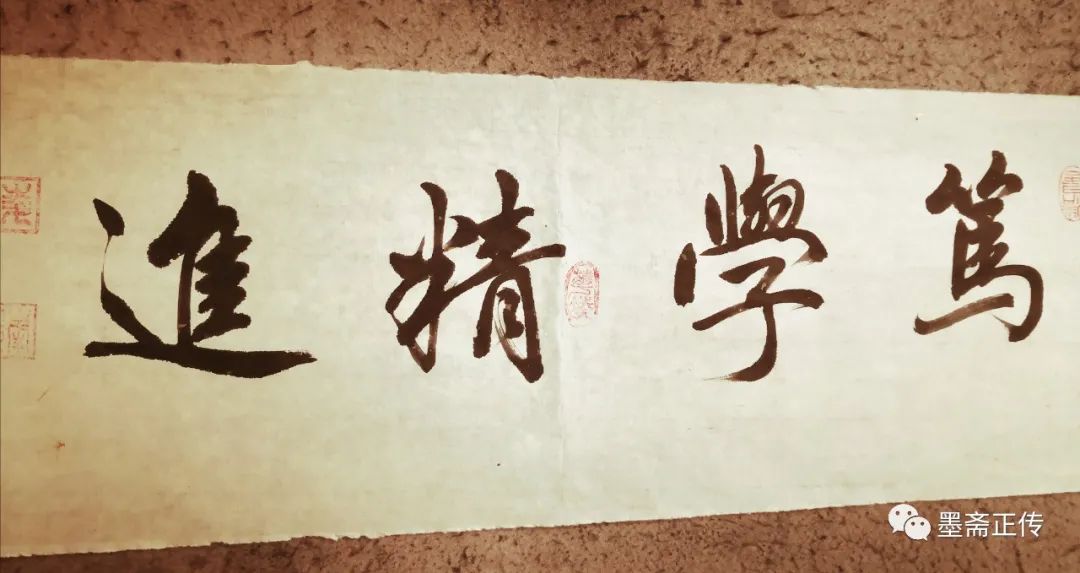 篤學精進
墨斋正传